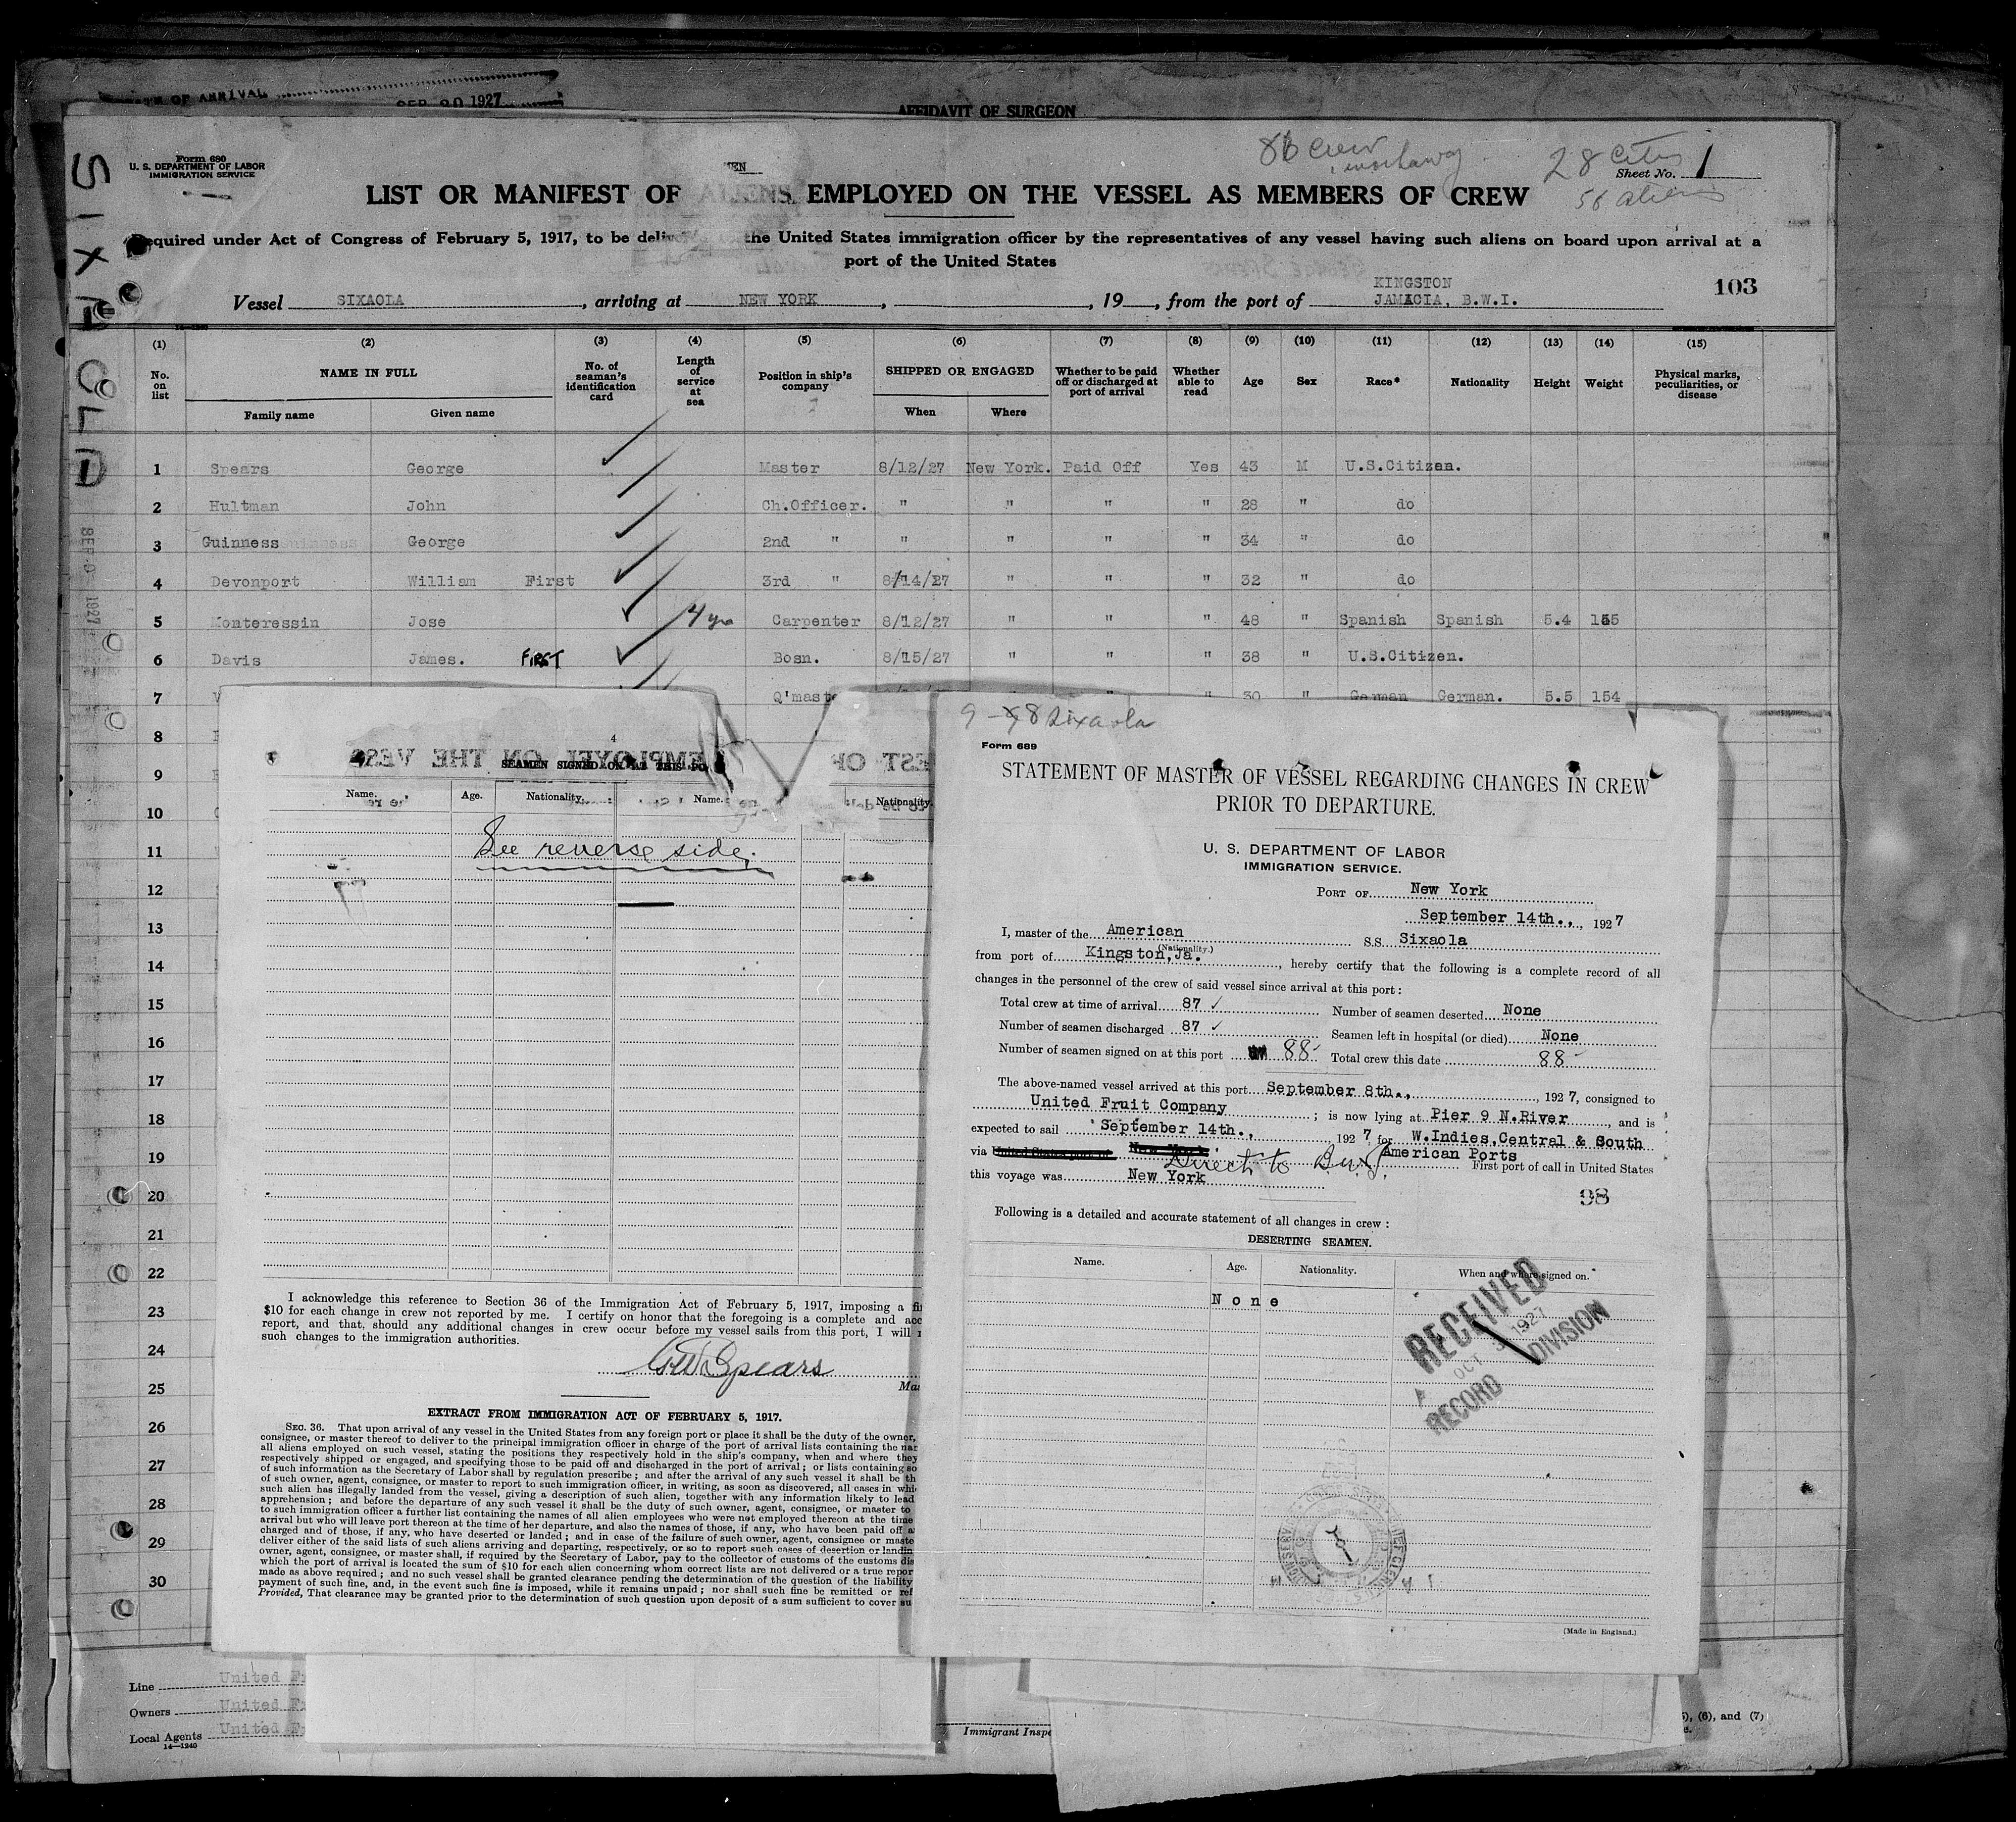 SEP 20 1927
AFFIDAVIT OF SURGEON
SIXAOLA
Form 680
U. S. DEPARTMENT OF LABOR
IMMIGRATION SERVICE
86 crew
28 citizens
56 aliens
Sheet No. 1
LIST OR MANIFEST OF ALIENS EMPLOYED ON THE VESSEL AS MEMBERS OF CREW
Required under Act of Congress of February 5, 1917, to be the United States immigration officer by the representatives of any vessel having such aliens on board upon arrival at a
port of the United States
Vessel SIXAOLA, arriving at NEW YORK, , 19 , from the port of KINGSTON JAMACIA, B.W.I.
103
(1) (2) (3) (4) (5) (6) (7) (8) (9) (10) (11) (12) (13) (14) (15)
No. on list NAME IN FULL Family name Given name No. of seaman's identification card Length of service at sea Position in ship's company SHIPPED OR ENGAGED When Where Whether to be paid off or discharged at port of arrival Whether able to read Age Sex Race* Nationality Height Weight Physical marks, peculiarities, or disease
1 Spears George Master 8/12/27 New York. Paid Off Yes 43 M U.S.Citizen.
2 Hultman John Ch.Officer. " " " " 28 " do
3 Guinness George 2nd " " " " " 34 " do
4 Devonport William First 3rd " 8/14/27 " " " 32 " do
5 Monteressin Jose 4 yrs Carpenter 8/12/27 " " " 48 " Spanish Spanish 5.4 155
6 Davis James. FIRST Bosn. 8/15/27 " " " 38 " U.S.Citizen.
7 Q'mast " " 30 " German German. 5.5 154
8
9
10
11
12
13
14
15
16
17
18
19
20
21
22
23
24
25
26
27
28
29
30
4
SEAMEN SIGNED ON AT THIS PO
Name. Age. Nationality. Name. Nationality.
See reverse side.
I acknowledge this reference to Section 36 of the Immigration Act of February 5, 1917, imposing a fi
$10 for each change in crew not reported by me. I certify on honor that the foregoing is a complete and acc
report, and that, should any additional changes in crew occur before my vessel sails from this port, I will r
such changes to the immigration authorities.
G W Spears
Mas
EXTRACT FROM IMMIGRATION ACT OF FEBRUARY 5, 1917.
SEC. 36. That upon arrival of any vessel in the United States from any foreign port or place it shall be the duty of the owner,
consignee, or master thereof to deliver to the principal immigration officer in charge of the port of arrival lists containing the nam
all aliens employed on such vessel, stating the positions they respectively hold in the ship's company, when and where they
respectively shipped or engaged, and specifying those to be paid off and discharged in the port of arrival; or lists containing so
of such information as the Secretary of Labor shall by regulation prescribe; and after the arrival of any such vessel it shall be th
of such owner, agent, consignee, or master to report to such immigration officer, in writing, as soon as discovered, all cases in whi
such alien has illegally landed from the vessel, giving a description of such alien, together with any information likely to lead
apprehension; and before the departure of any such vessel it shall be the duty of such owner, agent, consignee, or master to
to such immigration officer a further list containing the names of all alien employees who were not employed thereon at the time
arrival but who will leave port thereon at the time of her departure, and also the names of those, if any, who have been paid off a
charged and of those, if any, who have deserted or landed; and in case of the failure of such owner, agent, consignee or maste
deliver either of the said lists of such aliens arriving and departing, respectively, or so to report such cases of desertion or landin
owner, agent, consignee, or master shall, if required by the Secretary of Labor, pay to the collector of customs of the customs dis
which the port of arrival is located the sum of $10 for each alien concerning whom correct lists are not delivered or a true repor
made as above required; and no such vessel shall be granted clearance pending the determination of the question of the liability
payment of such fine, and, in the event such fine is imposed, while it remains unpaid; nor shall such fine be remitted or ref
Provided, That clearance may be granted prior to the determination of such question upon deposit of a sum sufficient to cover su
9-8 Sixaola
Form 689
STATEMENT OF MASTER OF VESSEL REGARDING CHANGES IN CREW
PRIOR TO DEPARTURE.
U. S. DEPARTMENT OF LABOR
IMMIGRATION SERVICE.
PORT OF New York
September 14th., 1927
I, master of the American S.S. Sixaola
(Nationality.)
from port of Kingston, Ja. , hereby certify that the following is a complete record of all
changes in the personnel of the crew of said vessel since arrival at this port:
Total crew at time of arrival 87 ✓ Number of seamen deserted None
Number of seamen discharged 87 ✓ Seamen left in hospital (or died) None
Number of seamen signed on at this port 88 Total crew this date 88
The above-named vessel arrived at this port September 8th., 1927, consigned to
United Fruit Company ; is now lying at Pier 9 N.River , and is
expected to sail September 14th., 1927 for W.Indies,Central & South
American Ports
via United States port of New York Direct to B.W.I. First port of call in United States
this voyage was New York
98
Following is a detailed and accurate statement of all changes in crew:
DESERTING SEAMEN.
Name. Age. Nationality. When and where signed on.
None
RECEIVED
OCT 1927
RECORD DIVISION
(Made in England.)
Line United Fr
Owners United Fr
Local Agents United Fr
14—1240
Immigrant Inspe
(6), and (7)